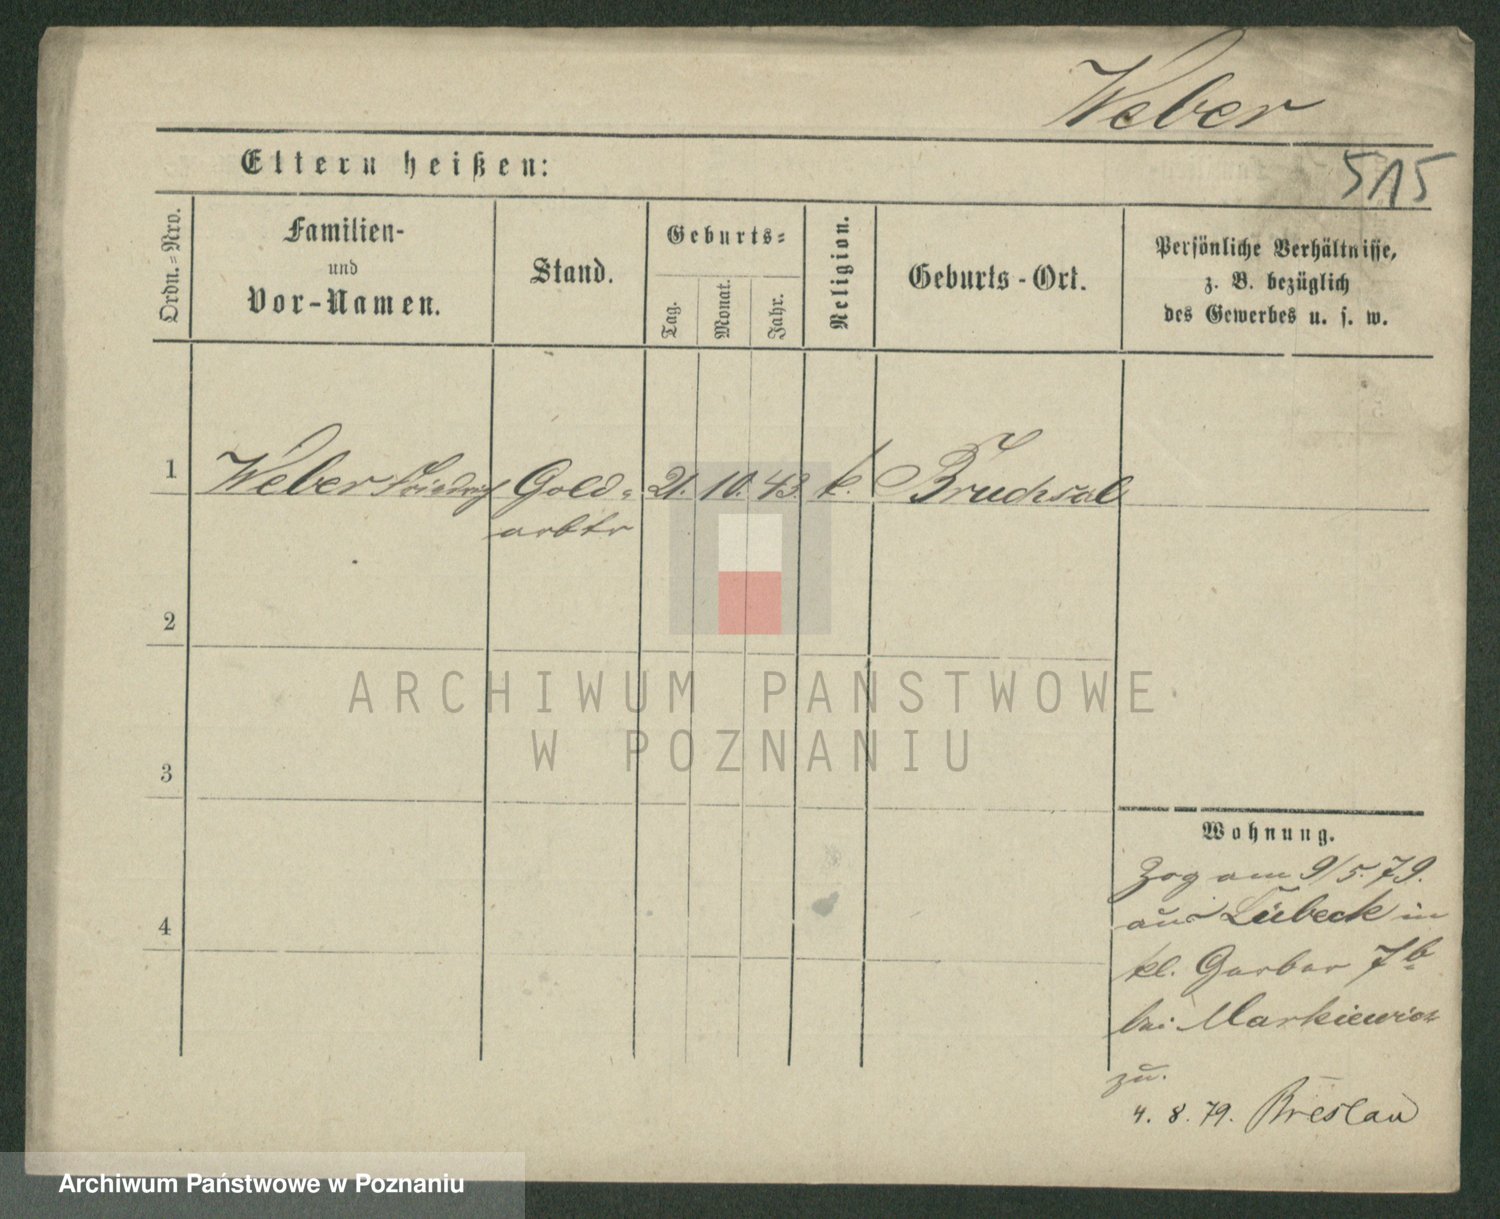 Weber
515
Eltern heißen:
Ordn.=Nro.
Familien-
und
Vor-Namen.
Stand.
Geburts=
Tag.
Monat.
Jahr.
Religion.
Geburts-Ort.
Persönliche Verhältnisse,
z. B. bezüglich
des Gewerbes u. s. w.
1 Weber Friedrich Gold= 21. 10. 43. k. Bruchsal
arbtr
2
3
4
Wohnung.
Zog am 9/5.79.
aus Lübeck in
kl. Gerber 7b
bei Markiewicz
zu.
4. 8. 79. Breslau
ARCHIWUM PAŃSTWOWE
W POZNANIU
Archiwum Państwowe w Poznaniu